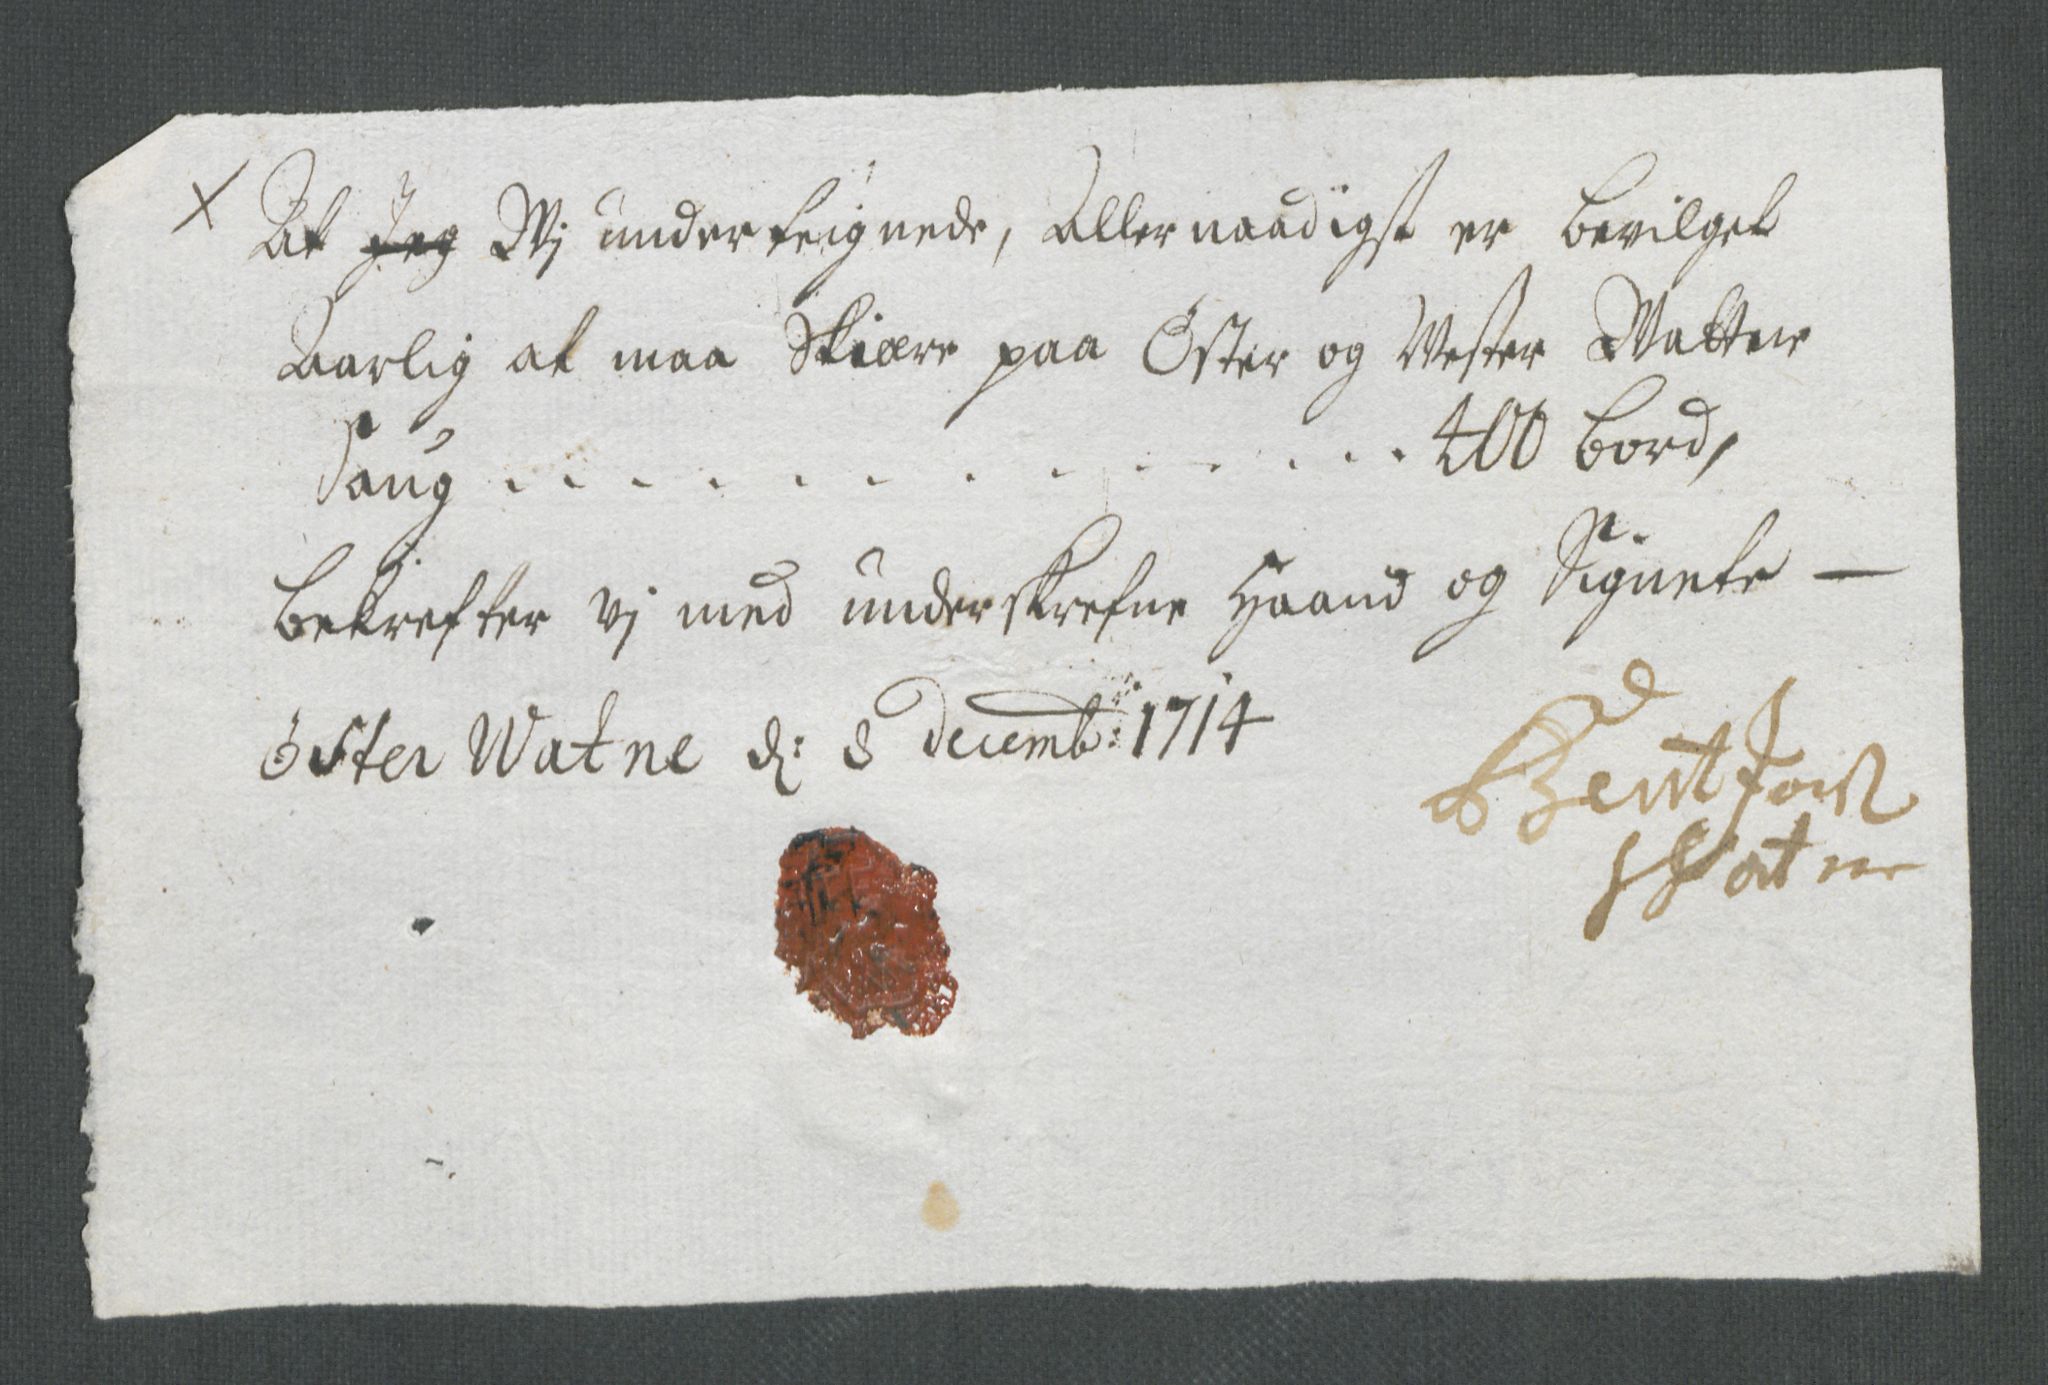 x At Jeg Wj underteignede, Allernaadigst er bevilget
Aarlig at maa Skiære paa Öster og Wester Wattne
Saug . . . . . . . . . . . . . . 400 bord,
bekrefter vj med underskrefne Haand og Signete —
Öster Watne d: 8 decemb: 1714
Bent
Watne